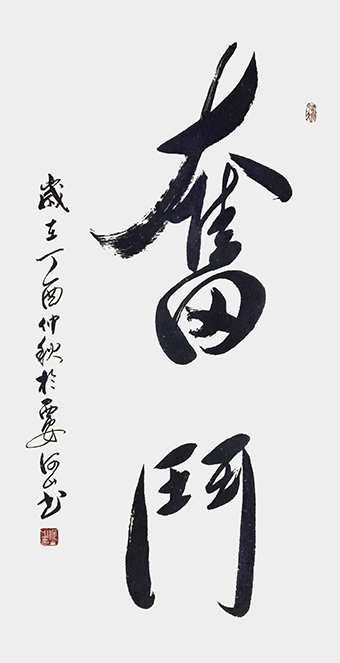 奮鬥
歲在丁酉仲秋於
山書